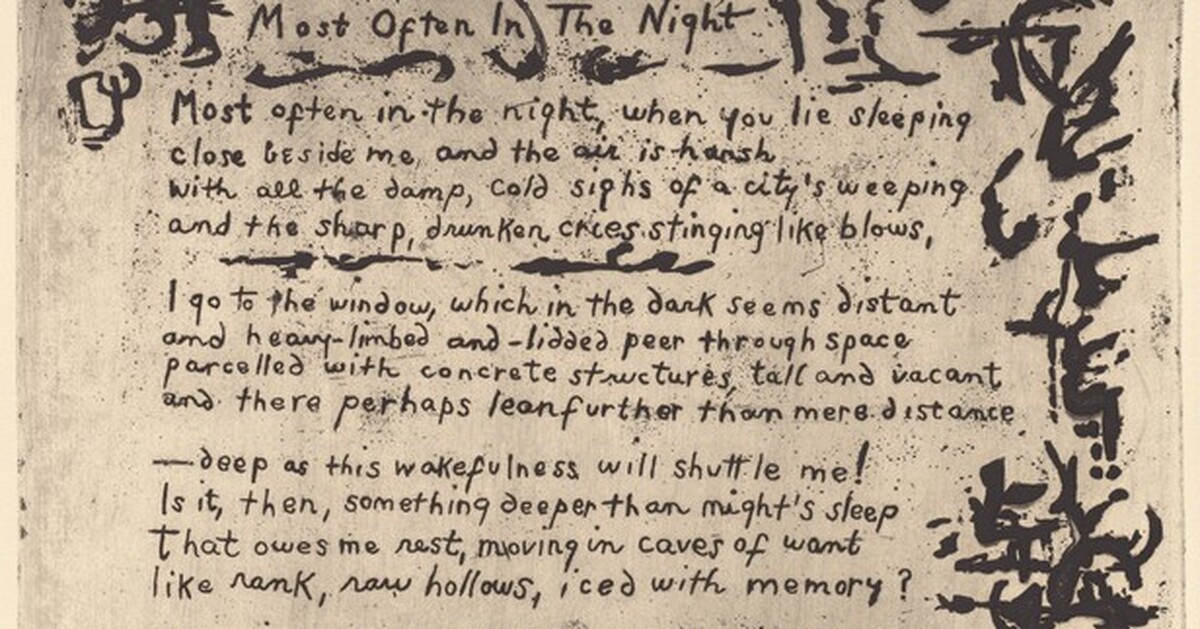 Most Often In The Night
Most often in the night, when you lie sleeping
close beside me, and the air is harsh
with all the damp, cold sighs of a city's weeping
and the sharp, drunken cries stinging like blows,
I go to the window, which in the dark seems distant
and heavy-limbed and-lidded peer through space
parcelled with concrete structures, tall and vacant
and there perhaps lean further than mere distance
—deep as this wakefulness will shuttle me!
Is it, then, something deeper than night's sleep
That owes me rest, moving in caves of want
like rank, raw hollows, iced with memory?